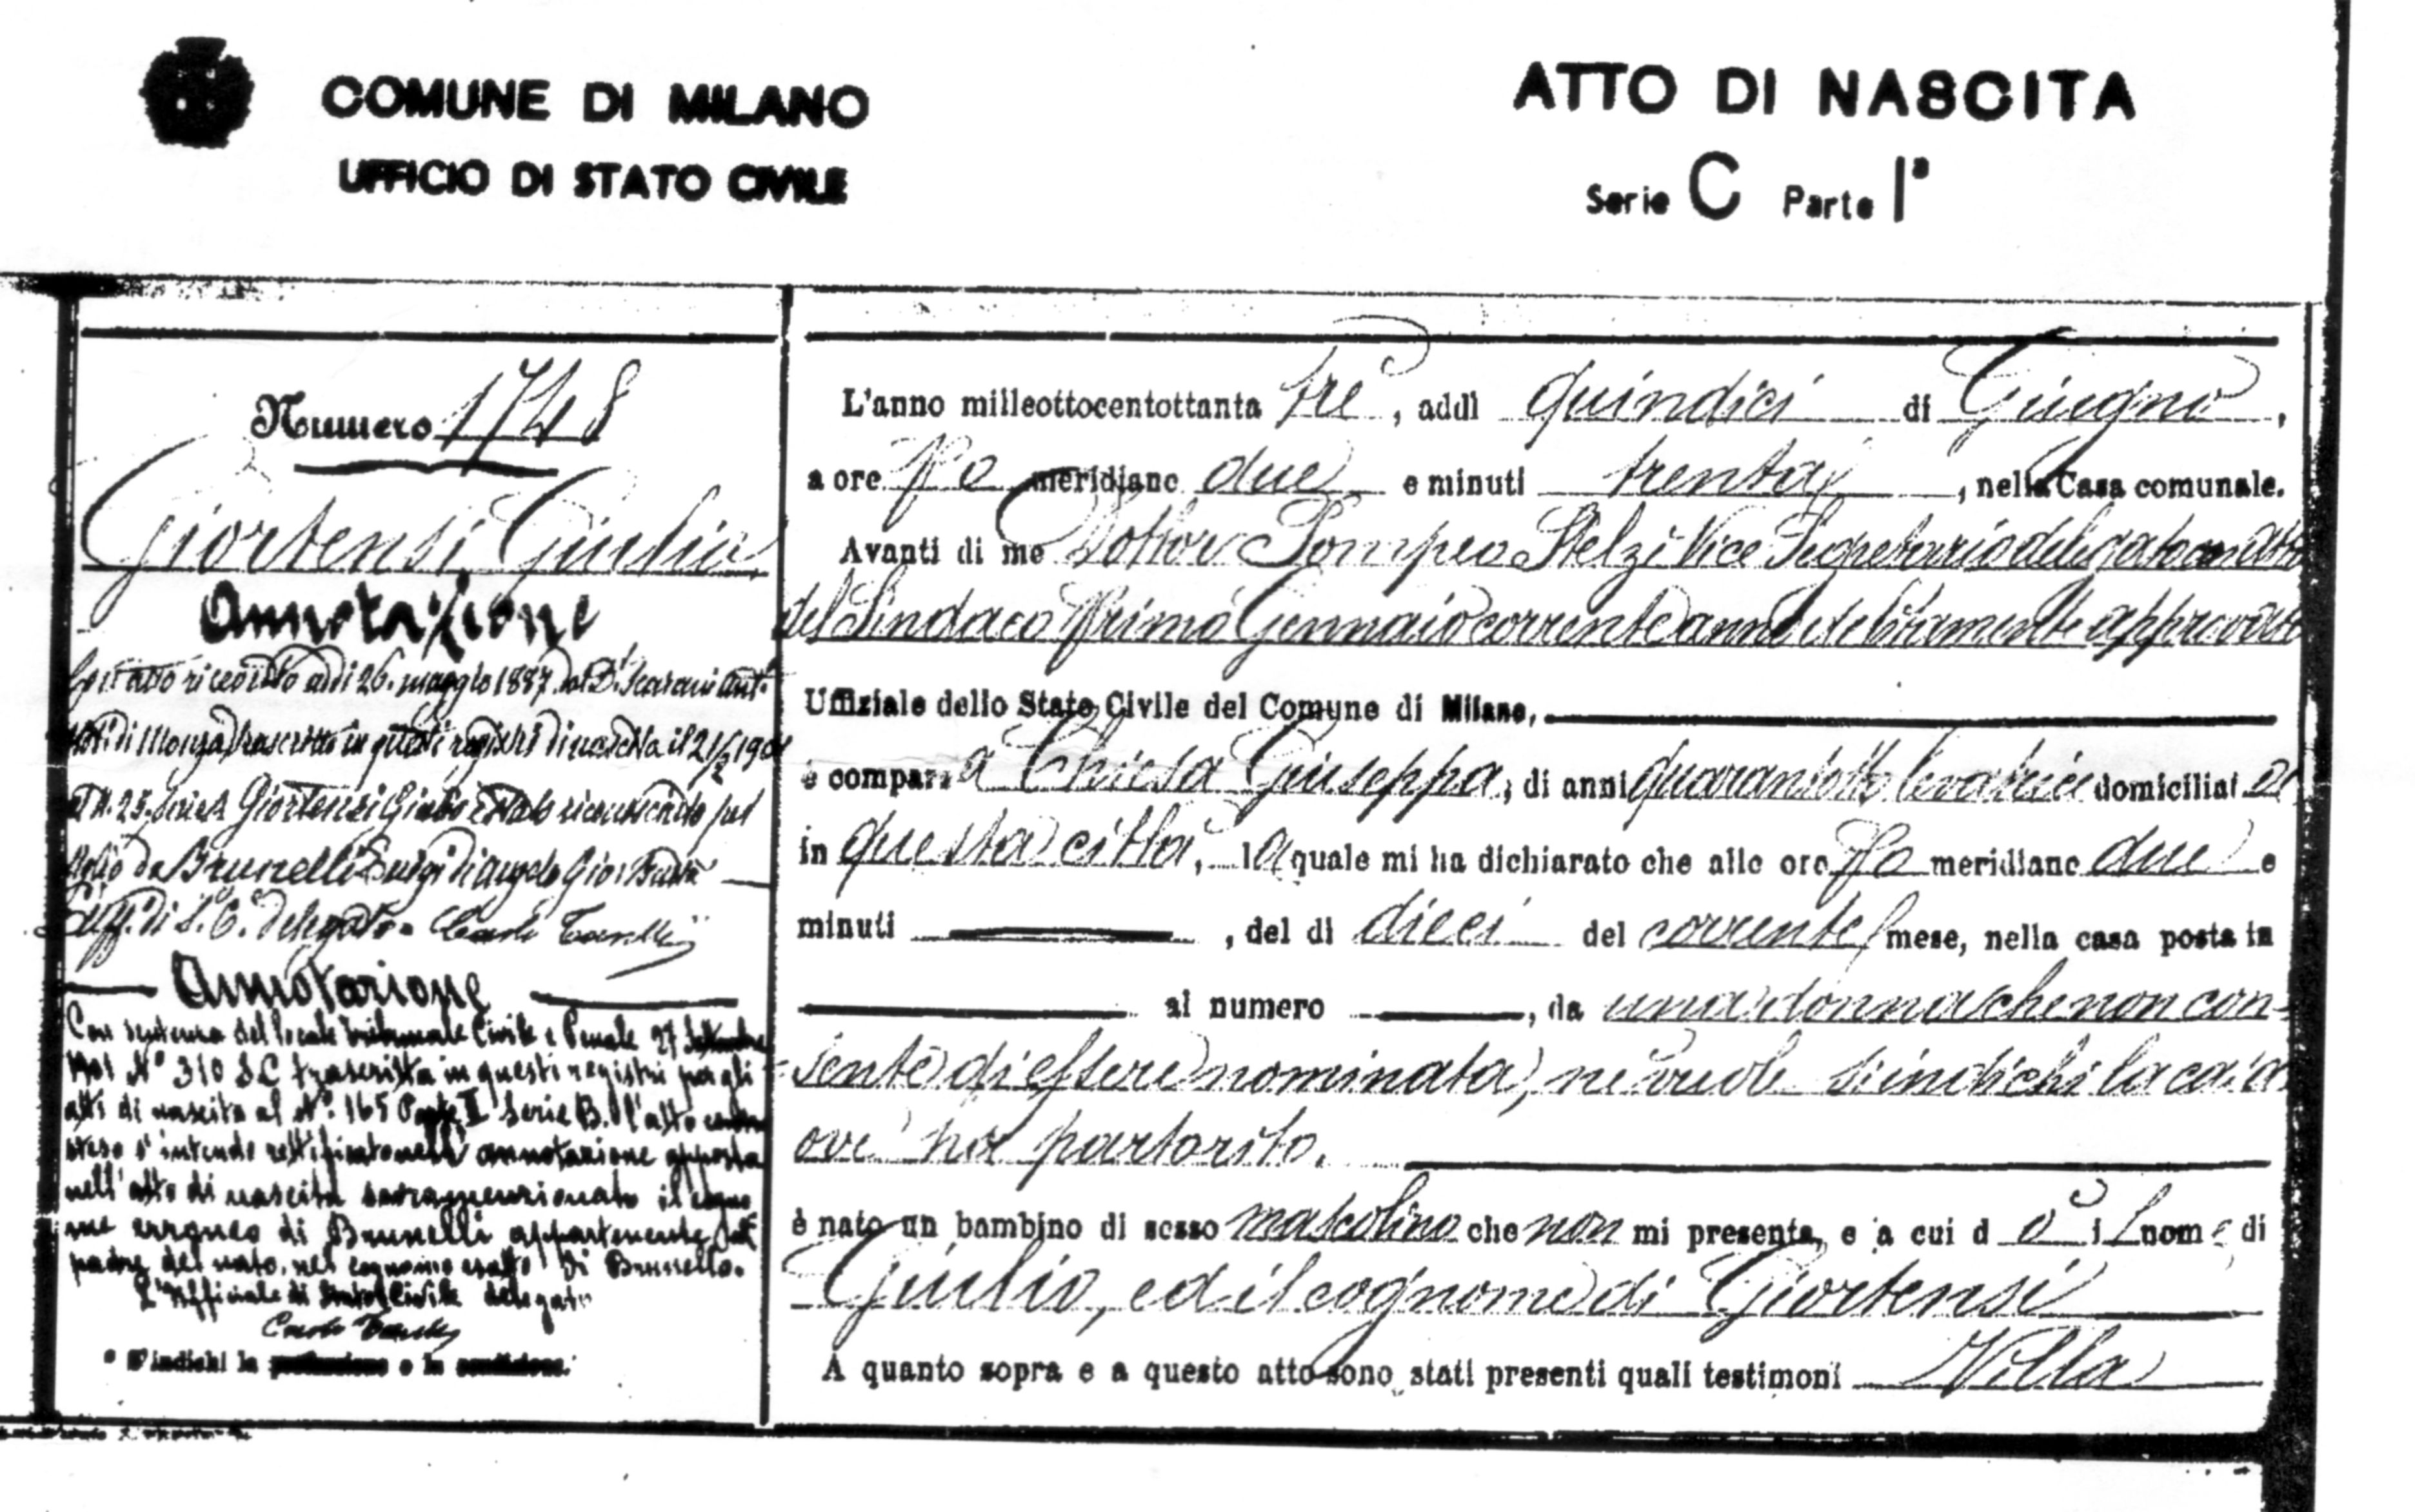 COMUNE DI MILANO
UFFICIO DI STATO CIVILE
ATTO DI NASCITA
Serie C Parte Iª
Numero 1748
Giortensi Giulio
Annotazione
ricevuto addì 26 maggio 1887 dal Dr. Scarani Ant.
Not. di Monza trascritto in questi registri di nascita il 21/2 1901
al N. 25. Serie Giortensi Giulio è stato riconosciuto pel
figlio da Brunelli Luigi di Angelo Gio. Batta
L'Uff. di S. C. delegato Carlo
Annotazione
Con sentenza del locale Tribunale Civile e Penale 27 Settembre
1901 Nº 310 S.C trascritta in questi registri per gli
atti di nascita al Nº 165 Parte II Serie B. l'atto contro
steso s'intende rettificato nell'annotazione apposta
nell'atto di nascita sovramenzionato il cogno
me erroneo di Brunelli appartenente al
padre del nato, nel cognome esatto di Brunello.
L'Ufficiale di Stato Civile delegato
Carlo
* S'indichi la professione o la condizione.
L'anno milleottocentottanta tre, addì quindici di Giugno,
a ore po meridiane due e minuti trenta, nella Casa comunale.
Avanti di me Dottor Pompeo Stelzi Vice Segretario delegato con atto
del Sindaco primo Gennaio corrente anno debitamente approvato
Uffiziale dello Stato Civile del Comune di Milano,
è comparsa Chiesa Giuseppa, di anni quarantotto levatrice domiciliata
in questa città, la quale mi ha dichiarato che alle ore po meridiane due e
minuti , del dì dieci del corrente mese, nella casa posta in
al numero , da una donna che non con-
sente di essere nominata, nè vuole s'indichi la casa
ove ha partorito.
è nato un bambino di sesso mascolino che non mi presenta, e a cui dò il nome di
Giulio, ed il cognome di Giortensi
A quanto sopra e a questo atto sono stati presenti quali testimoni Villa